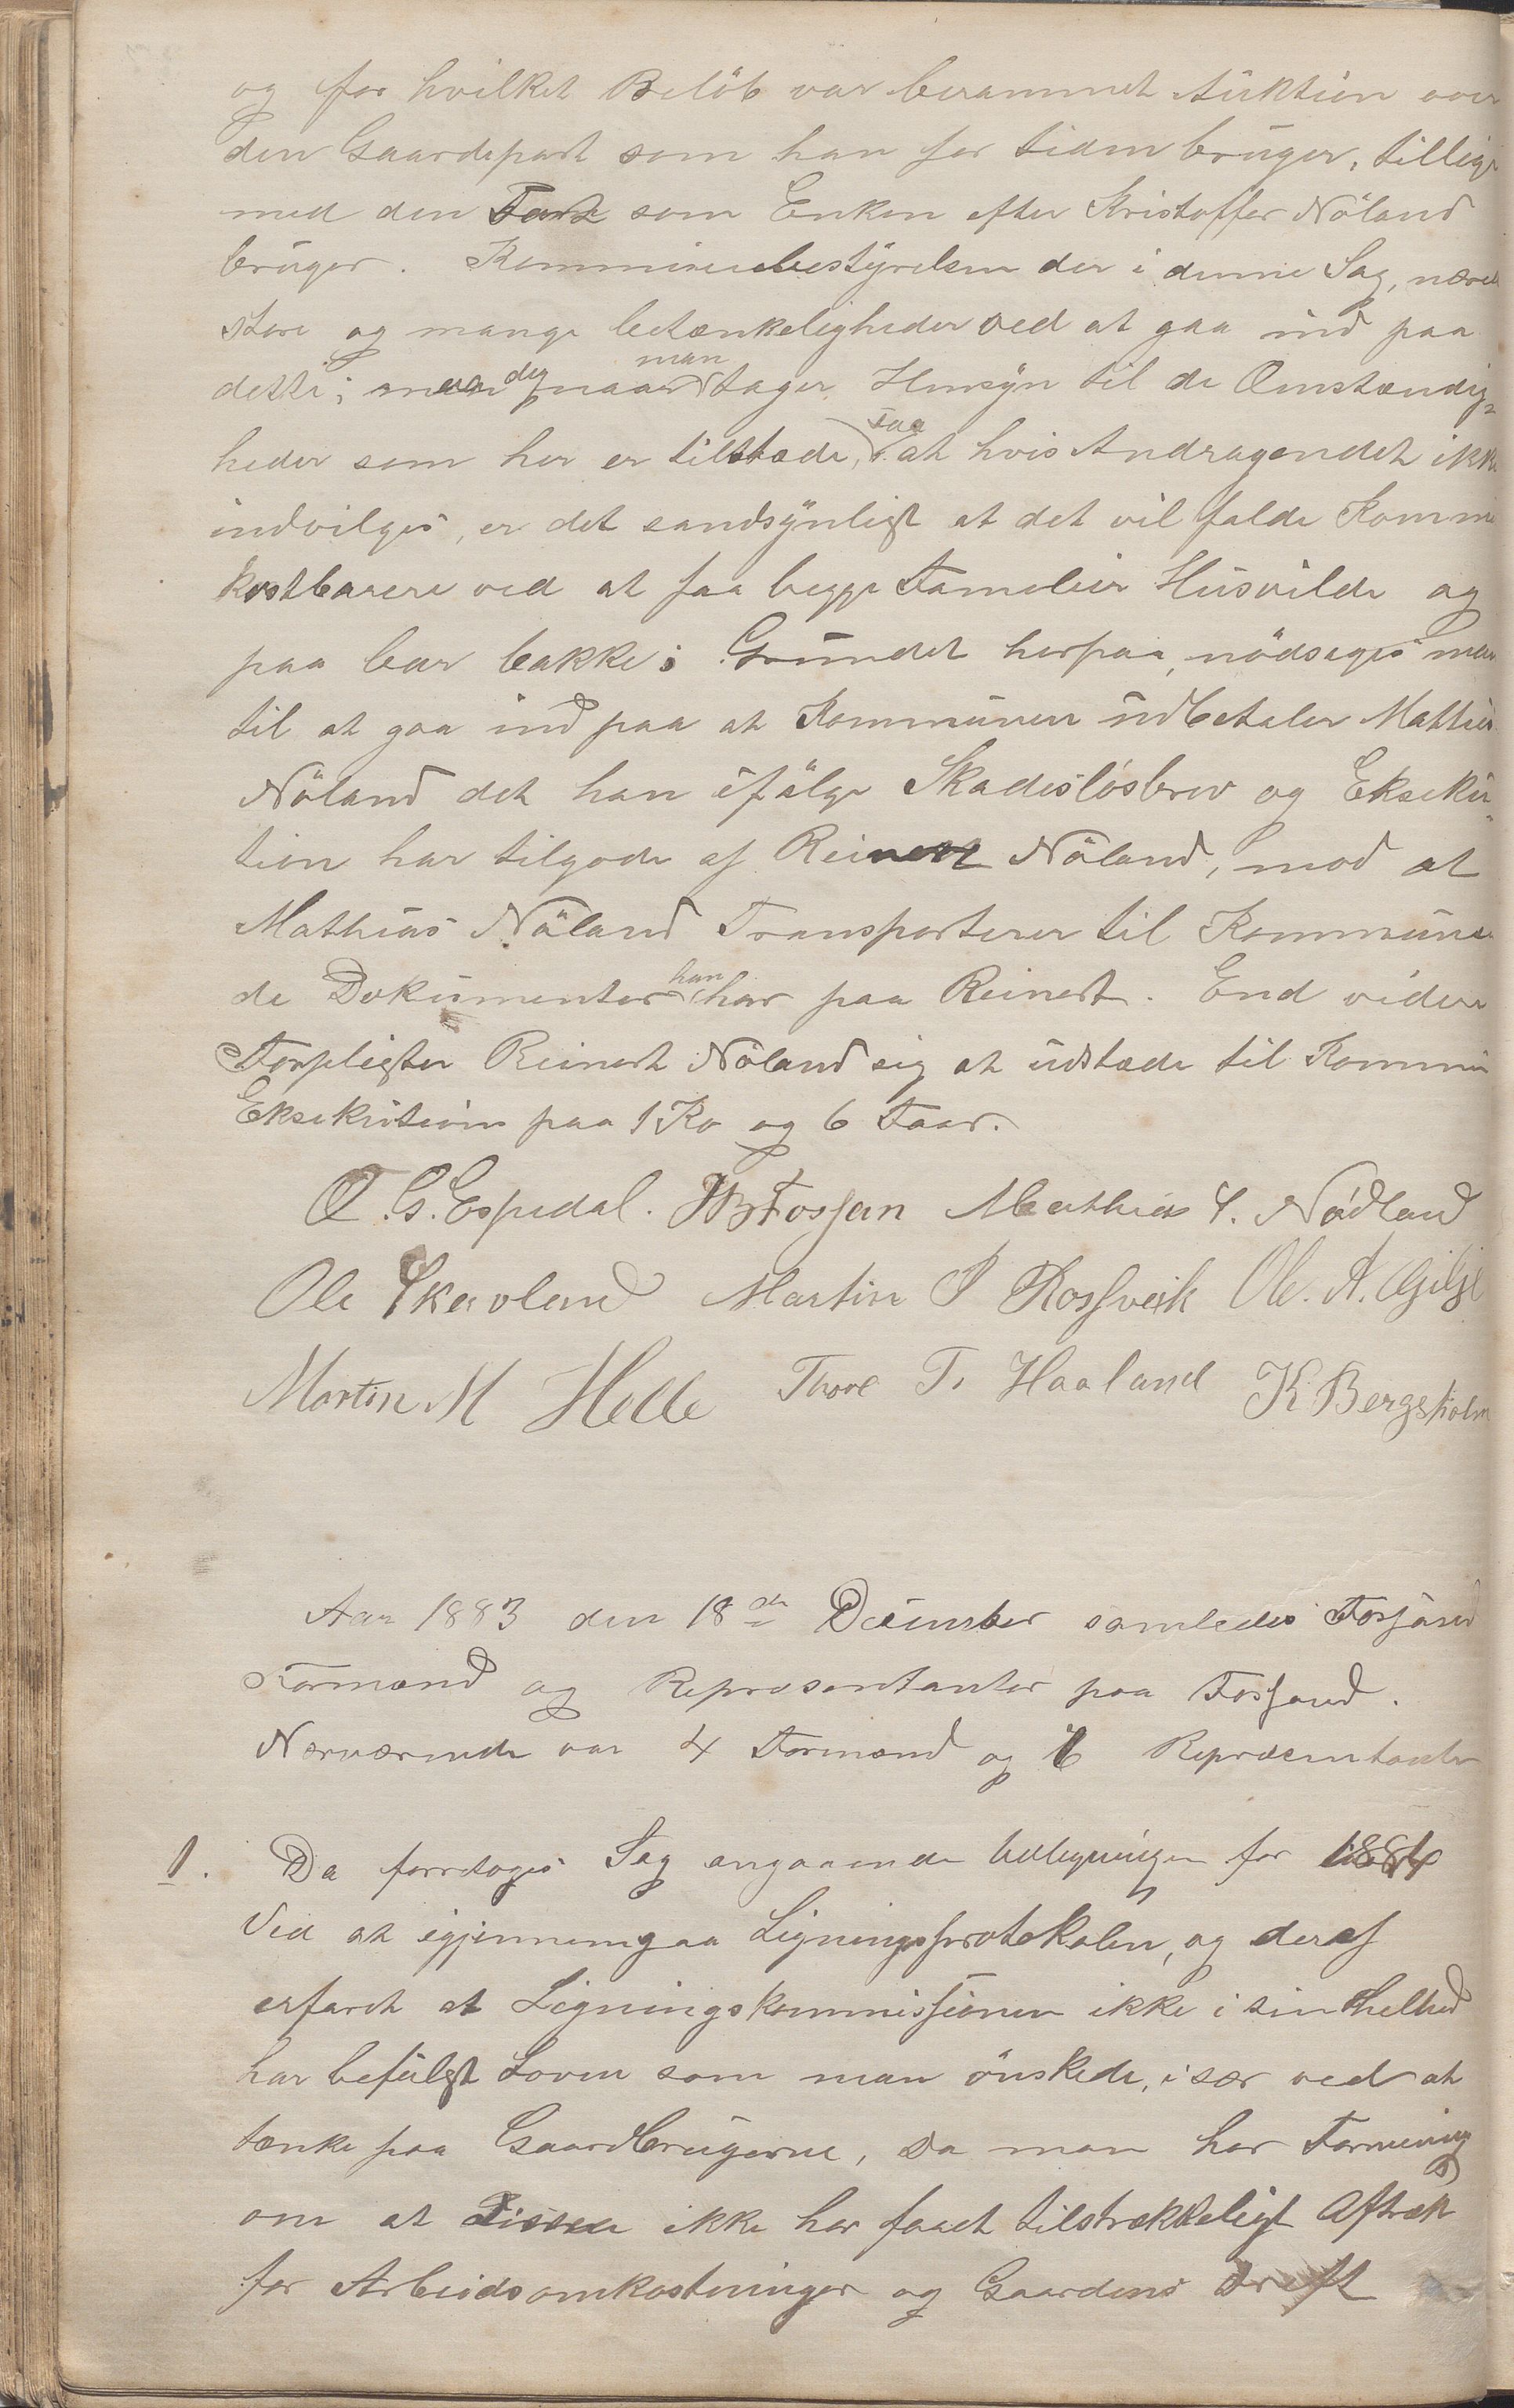 og for hvilket Beløb var berammet Auktion over
den Gaardepart som han for tiden bruger, tillige
med den Part som Enken efter Kristoffer Nöland
bruger. Kommunebestyrelsen der i denne Sag, nærer
store og mange betænkeligheder ved at gaa ind paa
dette; men dog naar man tager Hensyn til de Omstændig-
heder som her er tilstæde, saa at hvis Andragendet ikke
indvilges, er det sandsynligt at det vil falde Kommu
kostbarere ved at faa begge Familier Husvilde og
paa bar bakke; Grundet herpaa, nödsages man
til at gaa ind paa at Kommunen udbetaler Mathias
Nöland det han ifølge Skadesløsbrev og Ekseku-
tion har tilgode af Reinert Nöland, mod at
Mathias Nöland Transporterer til Kommune
de Dokumenter han har paa Reinert. End videre
Forpligter Reinert Nöland sig at udstæde til Kommu
Eksekution paa 1 Ko og 6 Faar.
O. G. Espedal. Fossan Mathias Nödland
Ole Skavland Martin P Rossvik Ole. A. Gilje
Martin M Helle Thore T. Haaland K Bergsholm
Aar 1883 den 18de December samledes Fossand
Formænd og Repræsentanter paa Fossand.
Nærværende var 4 Formænd og 6 Repræsentanter
1. Da foretoges Sag angaaende Udligningen for 1884
Ved at igjennemgaa Ligningsprotokolen, og deraf
erfaret at Ligningskommissionen ikke i sin Helhed
har befulgt Loven som man önskede, i sær ved at
tænke paa Gaardbrugerne, Da man har Formening
om at Disse ikke har faaet tilstrækkeligt Aftræk
for Arbeidsomkostninger og Gaardens Drift